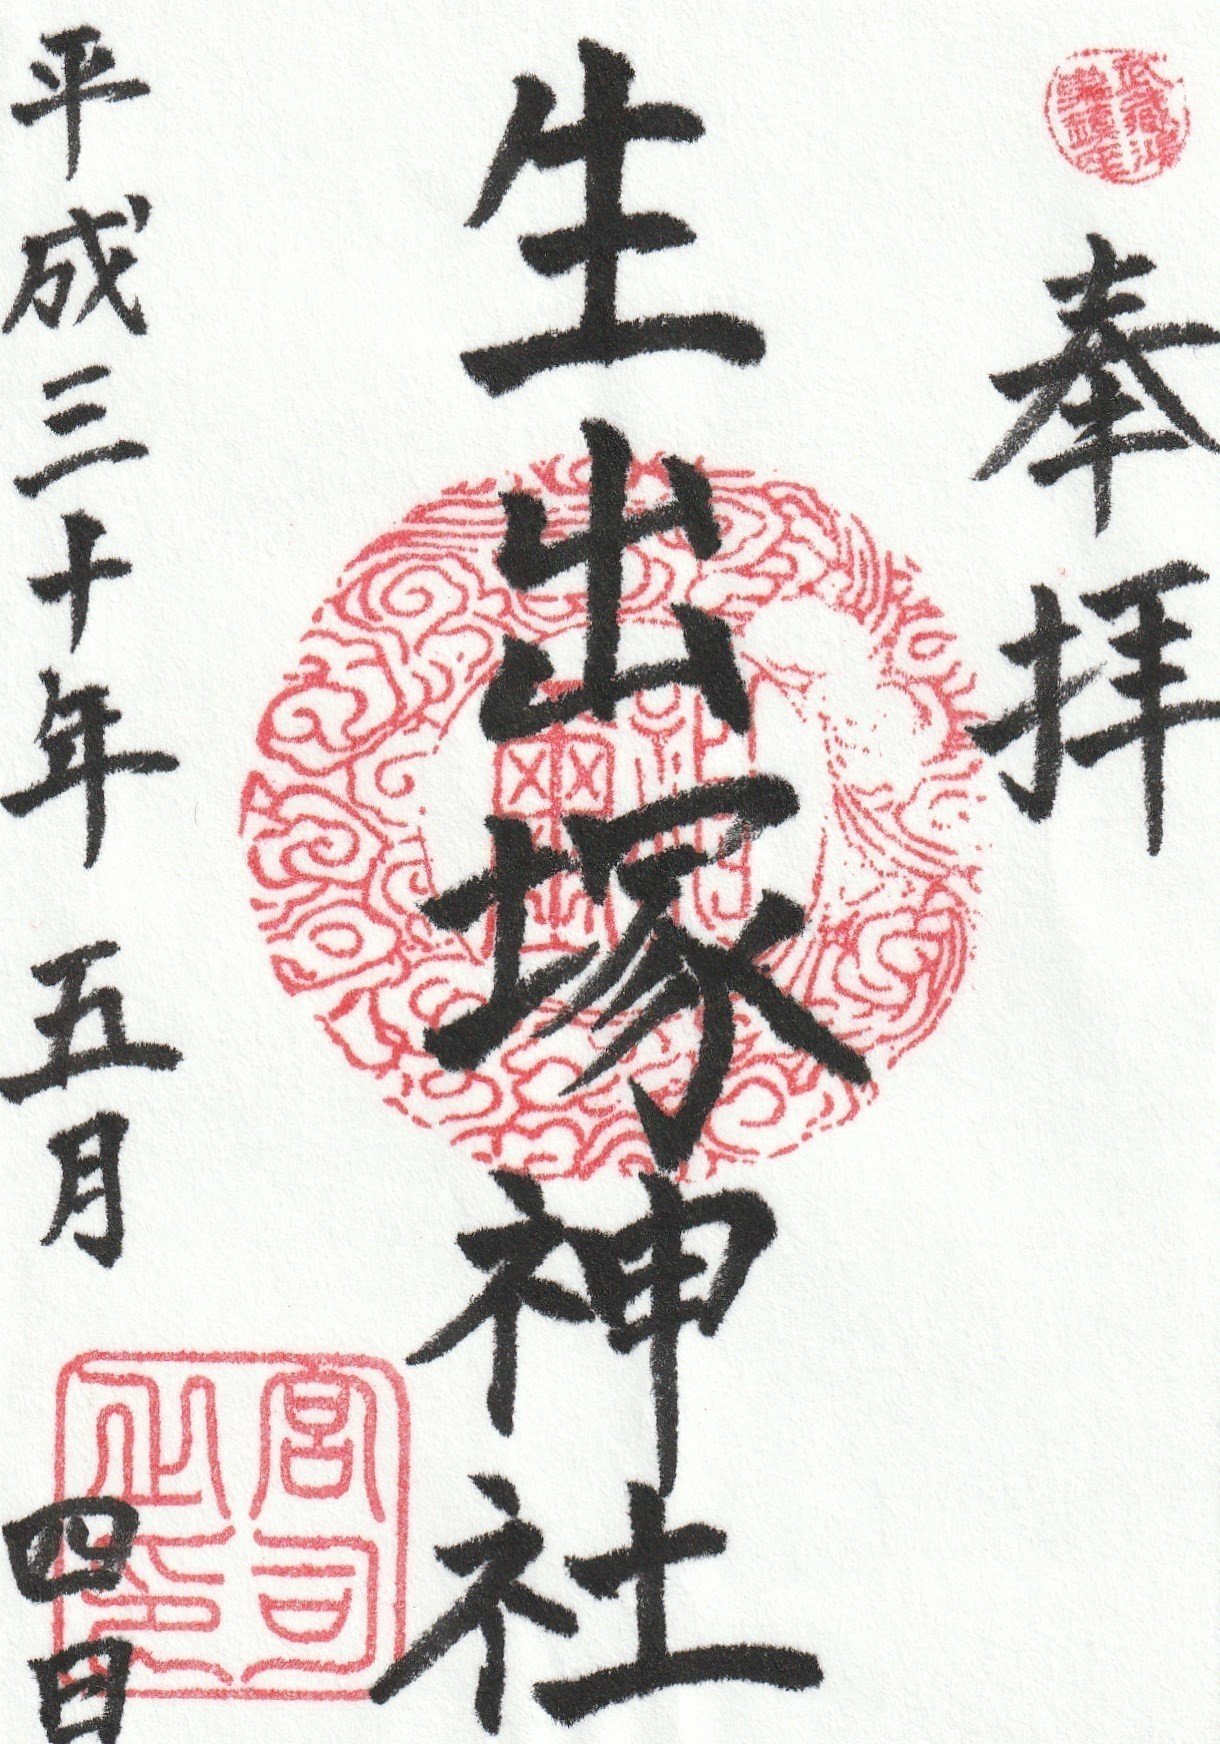 奉拝
生出塚神社
平成三十年五月四日
宮司之印